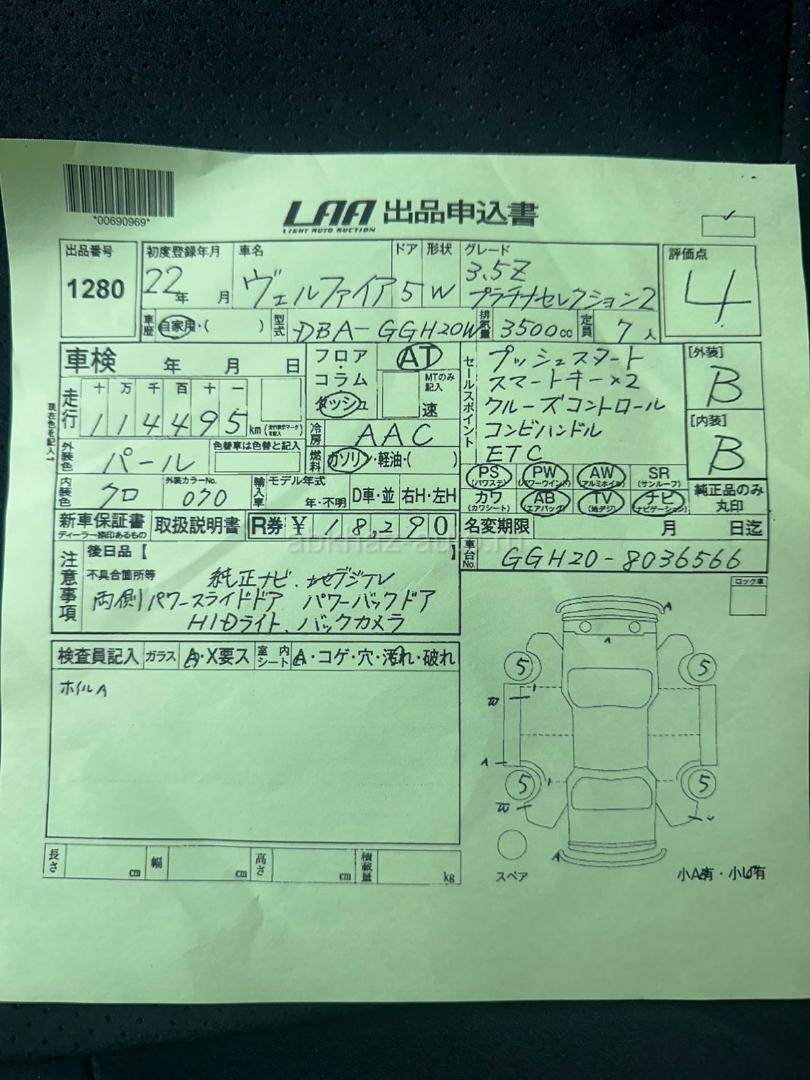 *00690969*
LAA 出品申込書
LIGHT AUTO AUCTION
出品番号
1280
初度登録年月
22年 月
車名
ヴェルファイア
ドア
5
形状
W
グレード
3.5Z
プラチナセレクション2
評価点
4
車歴 自家用・( )
型式 DBA-GGH20W
排気量 3500cc
定員 7人
車検 年 月 日
走行
十 万 千 百 十 一
114495 km
現在色を記入
フロア・コラム
ダッシュ
AT
MTのみ記入
速
冷房 AAC
燃料 ガソリン・軽油・( )
セールスポイント
プッシュスタート
スマートキー×2
クルーズコントロール
コンビハンドル
ETC
[外装]
B
[内装]
B
外装色 パール
色替車は色替と記入
内装色 クロ
外装カラーNo.
070
輸入車
モデル年式
年・不明
D車・並
右H・左H
PS (パワステ)
PW (パワーウインド)
AW (アルミホイル)
SR (サンルーフ)
カワ (カワシート)
AB (エアバッグ)
TV (地デジ)
ナビ (ナビゲーション)
純正品のみ丸印
新車保証書
ディーラー捺印あるもの
取扱説明書
R券 ¥18,290
名変期限 月 日迄
車台No. GGH20-8036566
注意事項
後日品【 】
不具合箇所等
純正ナビ、地デジTV
両側パワースライドドア パワーバックドア
HIDライト、バックカメラ
abkhaz-auto.ru
ロック車
検査員記入
ガラス A・X要ス
室内シート A・コゲ・穴・汚れ・破れ
ホイルA
A
A
5
5
W
A
5
5
W
A
スペア
小A有・小U有
長さ cm
幅 cm
高さ cm
積載量 kg